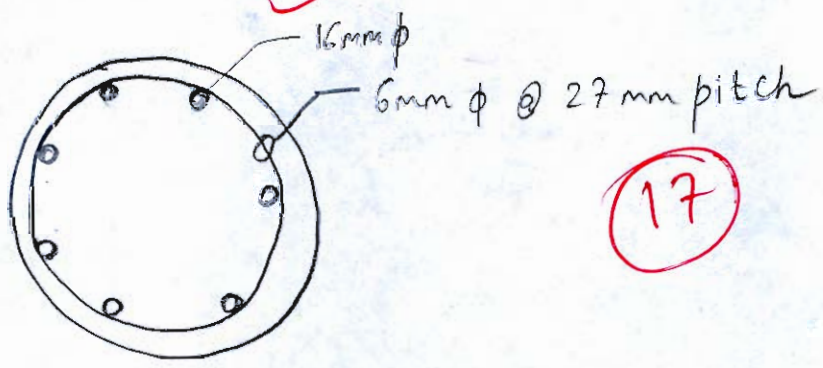 16mm ϕ
6mm ϕ @ 27 mm pitch
17